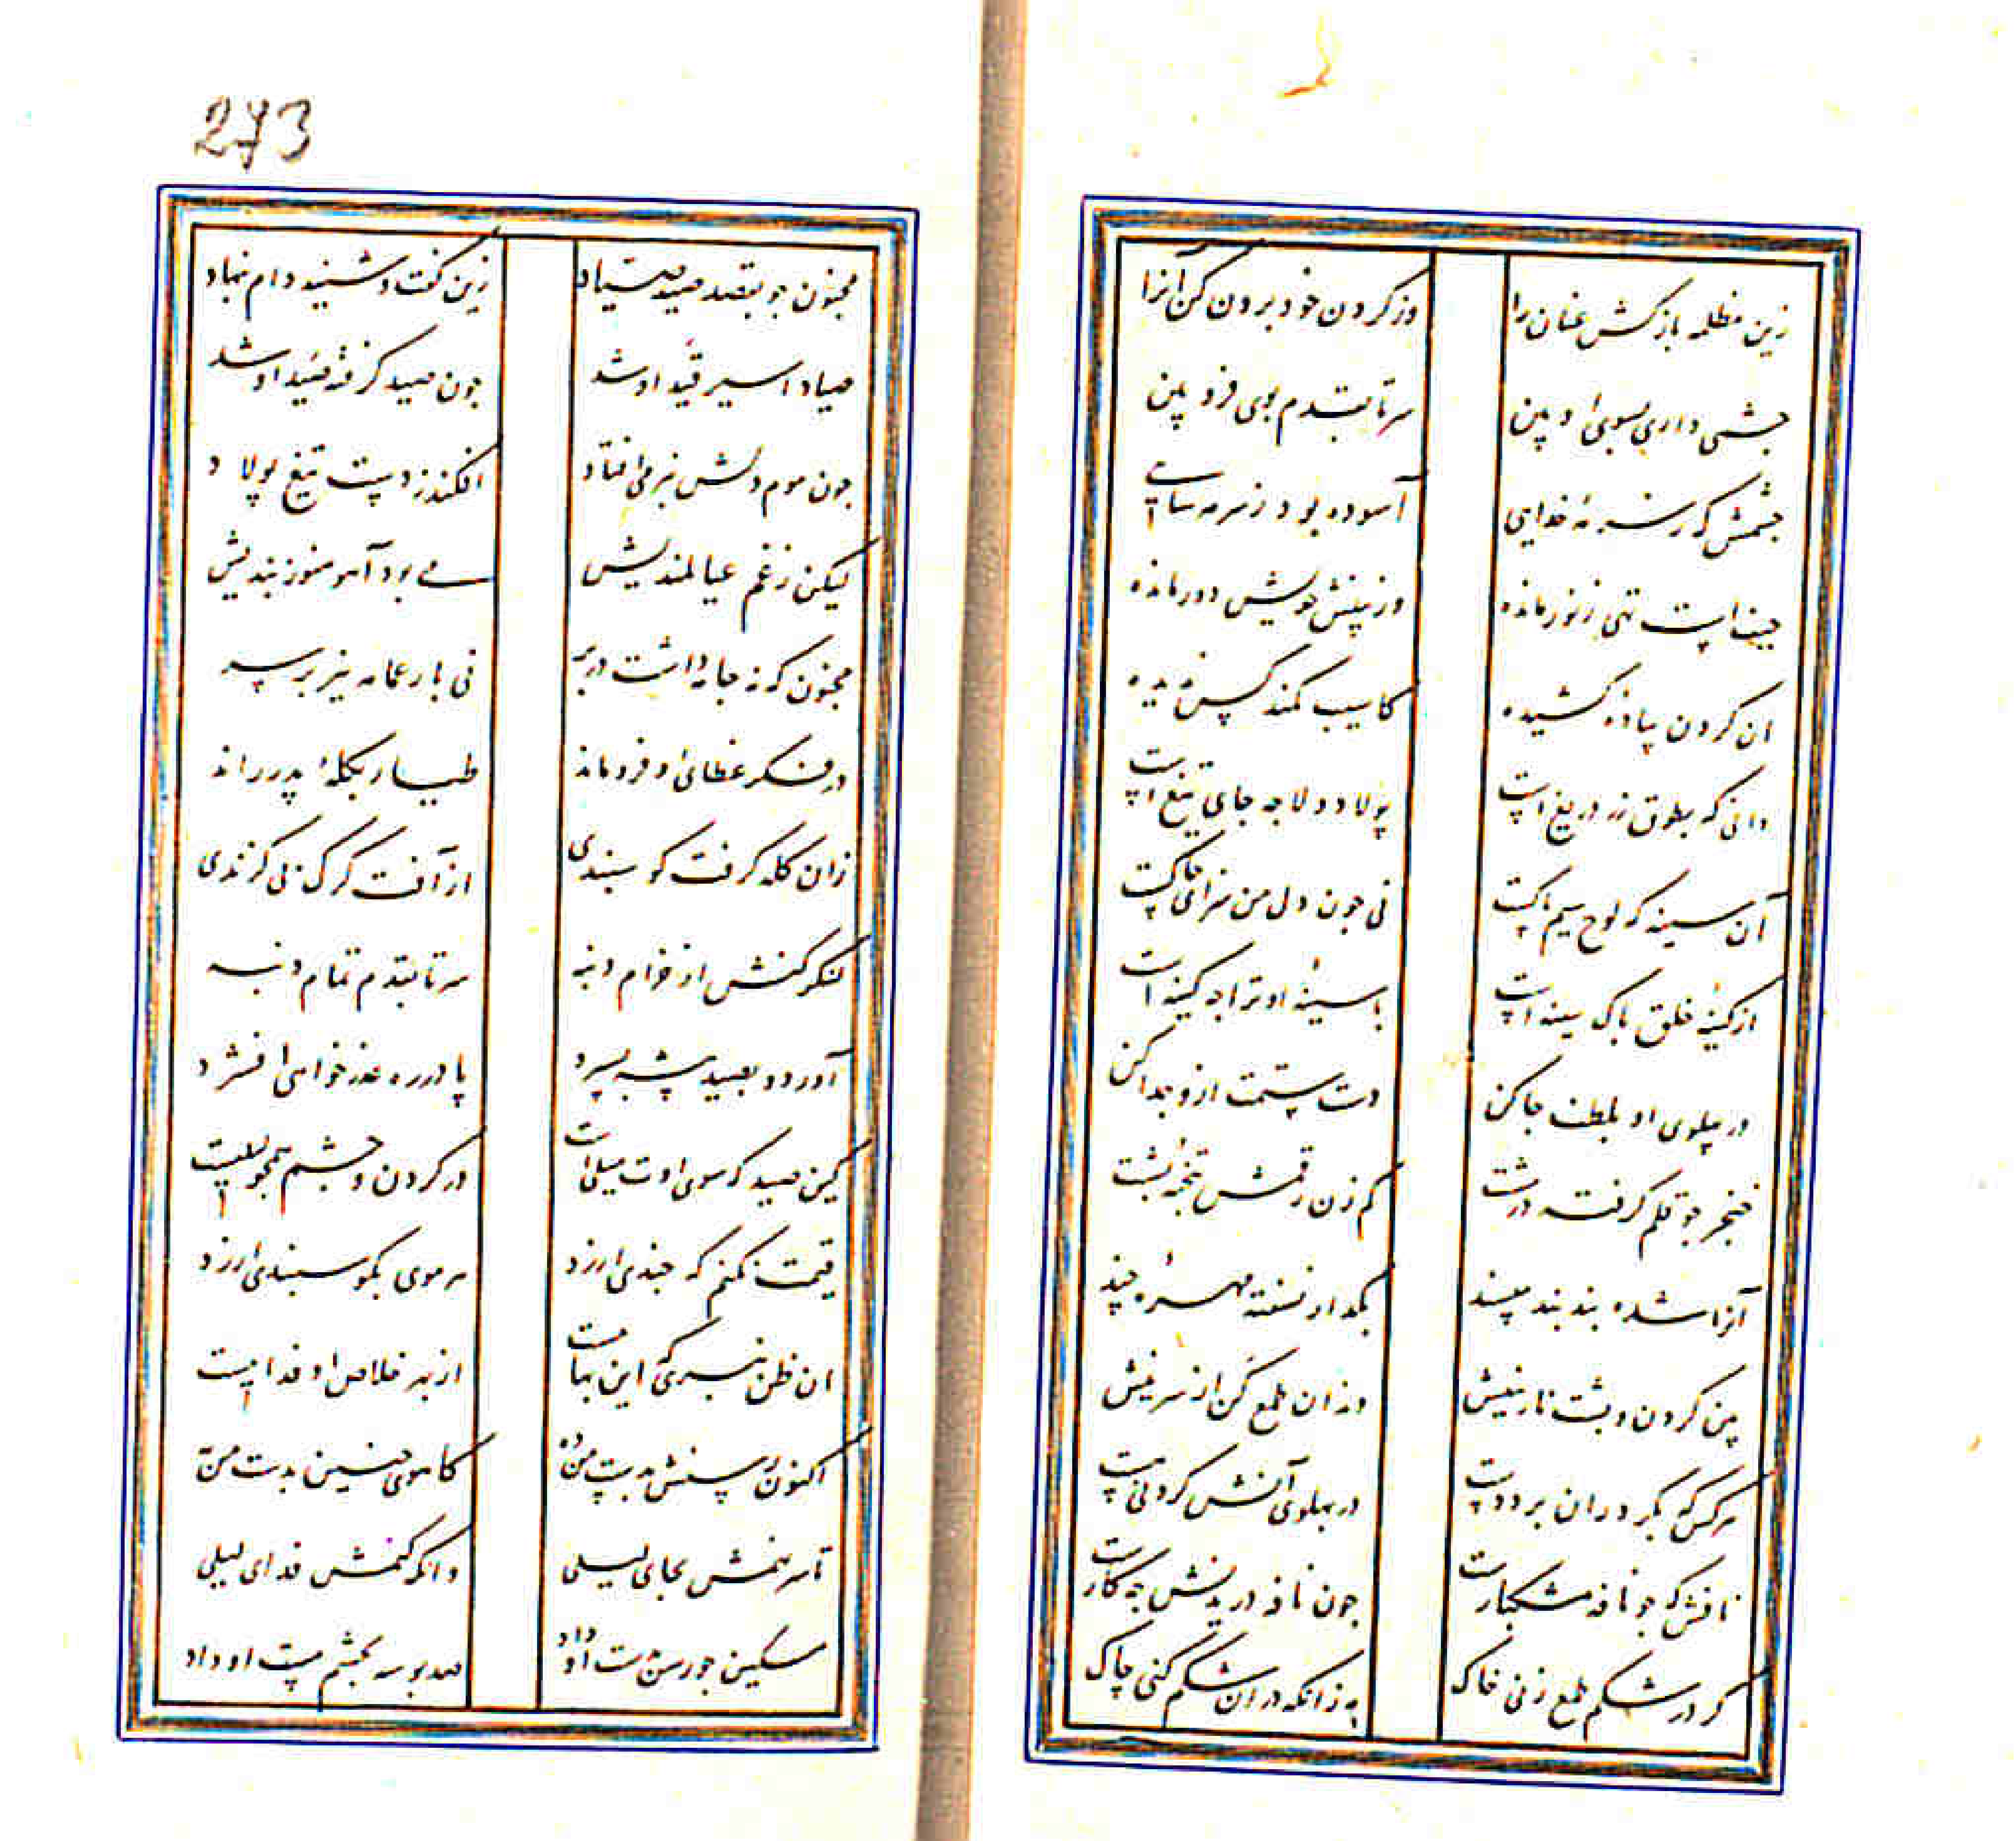 273
زین مظلمه بازکش عنان را وز گردن خود برون کن آنرا
چشمی داری بسوی او بین سر تا بقدم بوی فرو بین
چشمش که ز سرمهٔ خدایی آسوده بود ز سرمه سایی
حیف است تهی ز نور مانده وز بینش خویش دور مانده
ان کردن بیاده کشیده کاسیب کمند کس ندیده
دانی که بطوق زر دریغ است پولاد دلا جه جای تیغ است
آن سینه که لوح سیم پاکست نی جون دل من سزای چاکست
از کینهٔ خلق پاک سینه است با سینهٔ او ترا جه کینه است
در پهلوی او بلطف جا کن دست ستمت ازو جدا کن
خنجر جو قلم گرفته درشت کم زن رقمش بتختهٔ پشت
آنرا شده بند بند مپسند بگذار نسفته مهرهٔ چند
بین کردن و پشت نازنینش وز ان طمع کن از سرینش
هرکس که بگرد ران برد دست در پهلوی آتش کردنی هست
نافش که جو نافه مشکبارست جون نافه دریدنش جه کارست
گر در شکم طمع زنی خاک به زانکه در ان شکم کنی چاک
مجنون جو بقصد صید صیاد زین گفت و شنید دام بنهاد
صیاد اسیر قید او شد جون صید گرفته صید او شد
جون موم دلش بنرمی افتاد افکند ز دست تیغ پولاد
لیکن ز غم عیالمندیش می بود آهو هنوز بندیش
مجنون که نه جامه داشت در بر نی بار عمامه نیز بر سر
در فکر عطای او فرو ماند طیار بگلهٔ پدر راند
زان گله گرفت گوسبندی از آفت گرگ بی گزندی
لنگر کنش از خرام دنبه سر تا بقدم تمام دنبه
آورد و بصید پیشه بسپرد پا در ره عذرخواهی افشرد
کین صید که سوی اوت میلیست در گردن و چشم همچو لیلیست
قیمت نکنم که جندی ارزد هر موی بگوسبندی ارزد
ان ظن نبری که این بهاست از بهر خلاص او فداییست
اکنون رسنش بدست من ده کاهوی جنین بدست من به
تا سر نهمش بجای لیلی وانگه کنمش فدای لیلی
مسکین جو رسن بدست او داد صد بوسه بچشم مست او داد